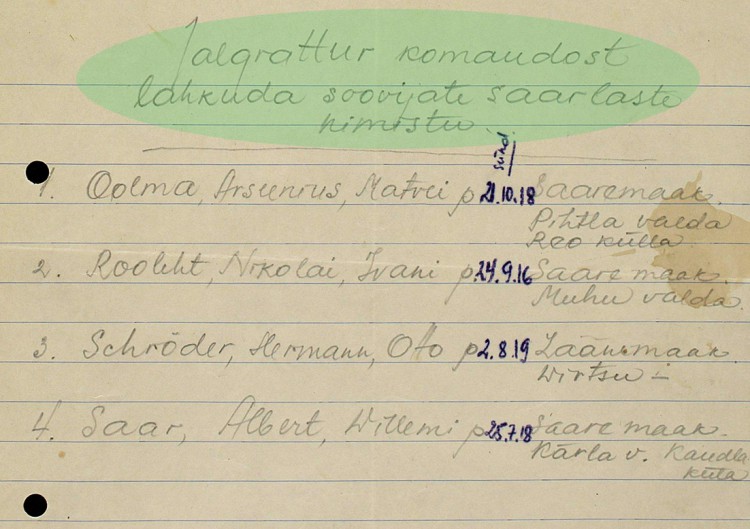 Jalgrattur komandost
lahkuda soovijate saarlaste
nimistu.
sünd.
1. Oolma, Arsenius, Matvei p. 21.10.18 Saaremaak.
Pihtla valda
Reo külla
2. Rooleht, Nikolai, Ivani p. 24.9.16 Saaremaak.
Muhu valda
3. Schröder, Hermann, Otto p. 2.8.19 Läänemaak.
Wirtsu -
4. Saar, Albert, Willemi p. 25.7.18 Saaremaak.
Kärla v. Kandla
küla